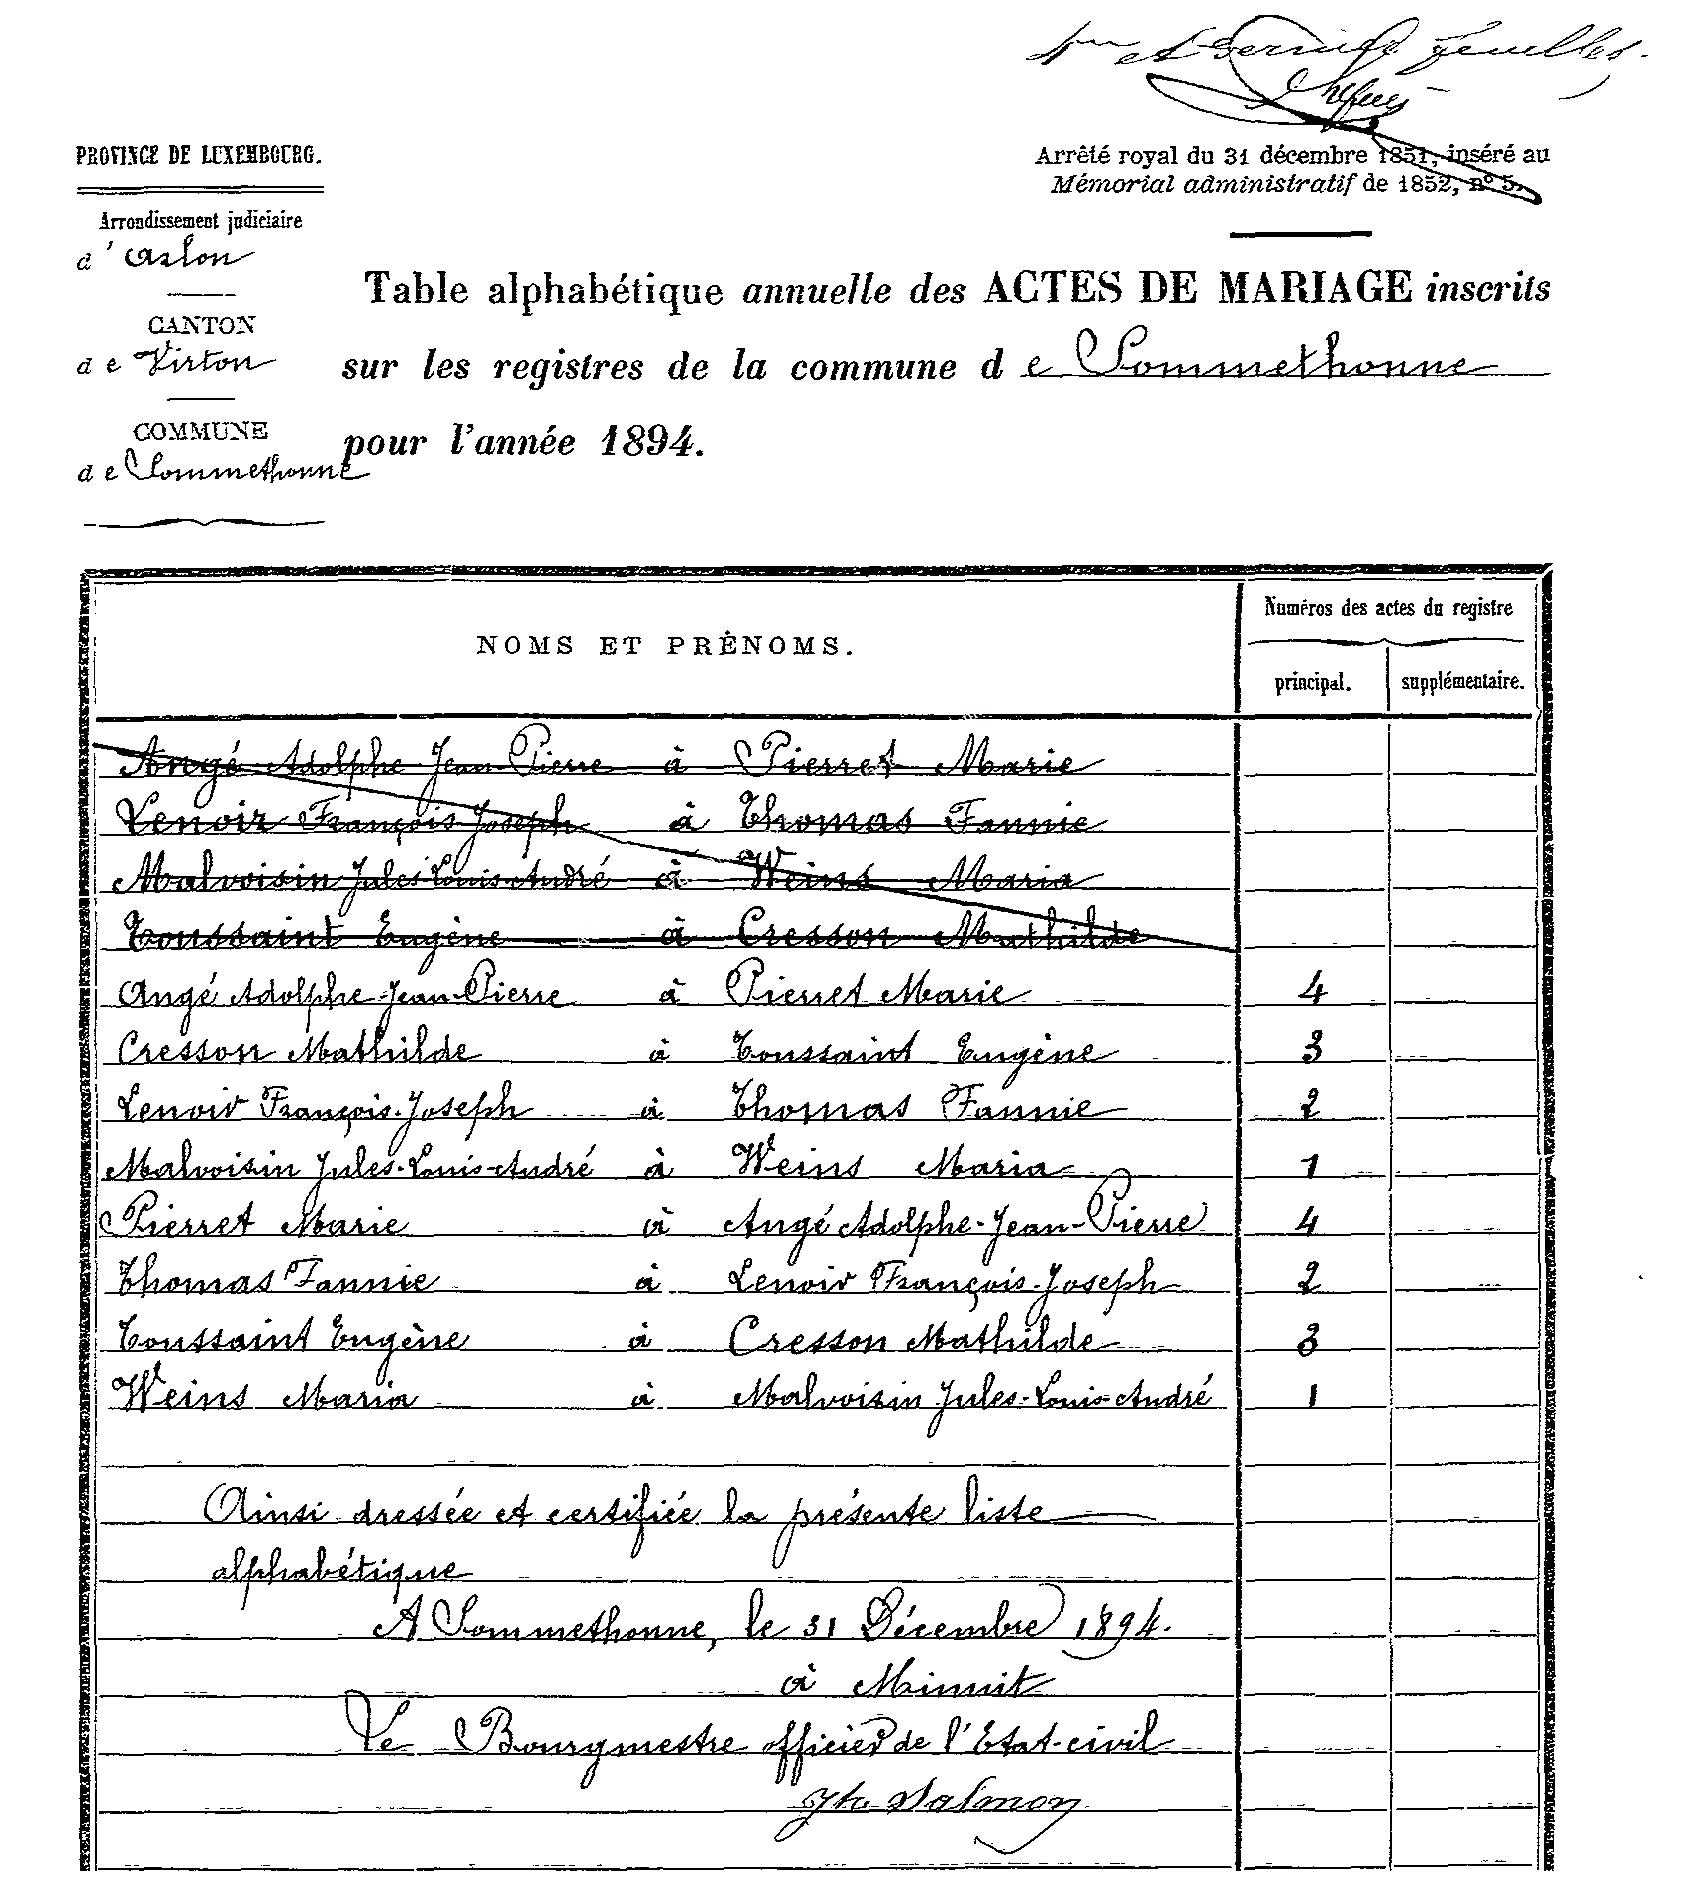 4me et dernier feuillet.
PROVINCE DE LUXEMBOURG.
Arrêté royal du 31 décembre 1851, inséré au
Mémorial administratif de 1852, nº 5.
Arrondissement judiciaire
d'Arlon
CANTON
de Virton
COMMUNE
de Sommethonne
Table alphabétique annuelle des ACTES DE MARIAGE inscrits
sur les registres de la commune de Sommethonne
pour l'année 1894.
NOMS ET PRÉNOMS. Numéros des actes du registre
principal. supplémentaire.
Angé Adolphe Jean-Pierre à Pierret Marie
Lenoir François Joseph à Thomas Fannie
Malvoisin Jules Louis-André à Weins Maria
Toussaint Eugène à Cresson Mathilde
Angé Adolphe-Jean-Pierre à Pierret Marie 4
Cresson Mathilde à Toussaint Eugène 3
Lenoir François-Joseph à Thomas Fannie 2
Malvoisin Jules-Louis-André à Weins Maria 1
Pierret Marie à Angé Adolphe-Jean-Pierre 4
Thomas Fannie à Lenoir François-Joseph 2
Toussaint Eugène à Cresson Mathilde 3
Weins Maria à Malvoisin Jules-Louis-André 1
Ainsi dressée et certifiée la présente liste
alphabétique
A Sommethonne, le 31 Décembre 1894.
à Minuit
Le Bourgmestre officier de l'Etat-civil
Jh Salmon